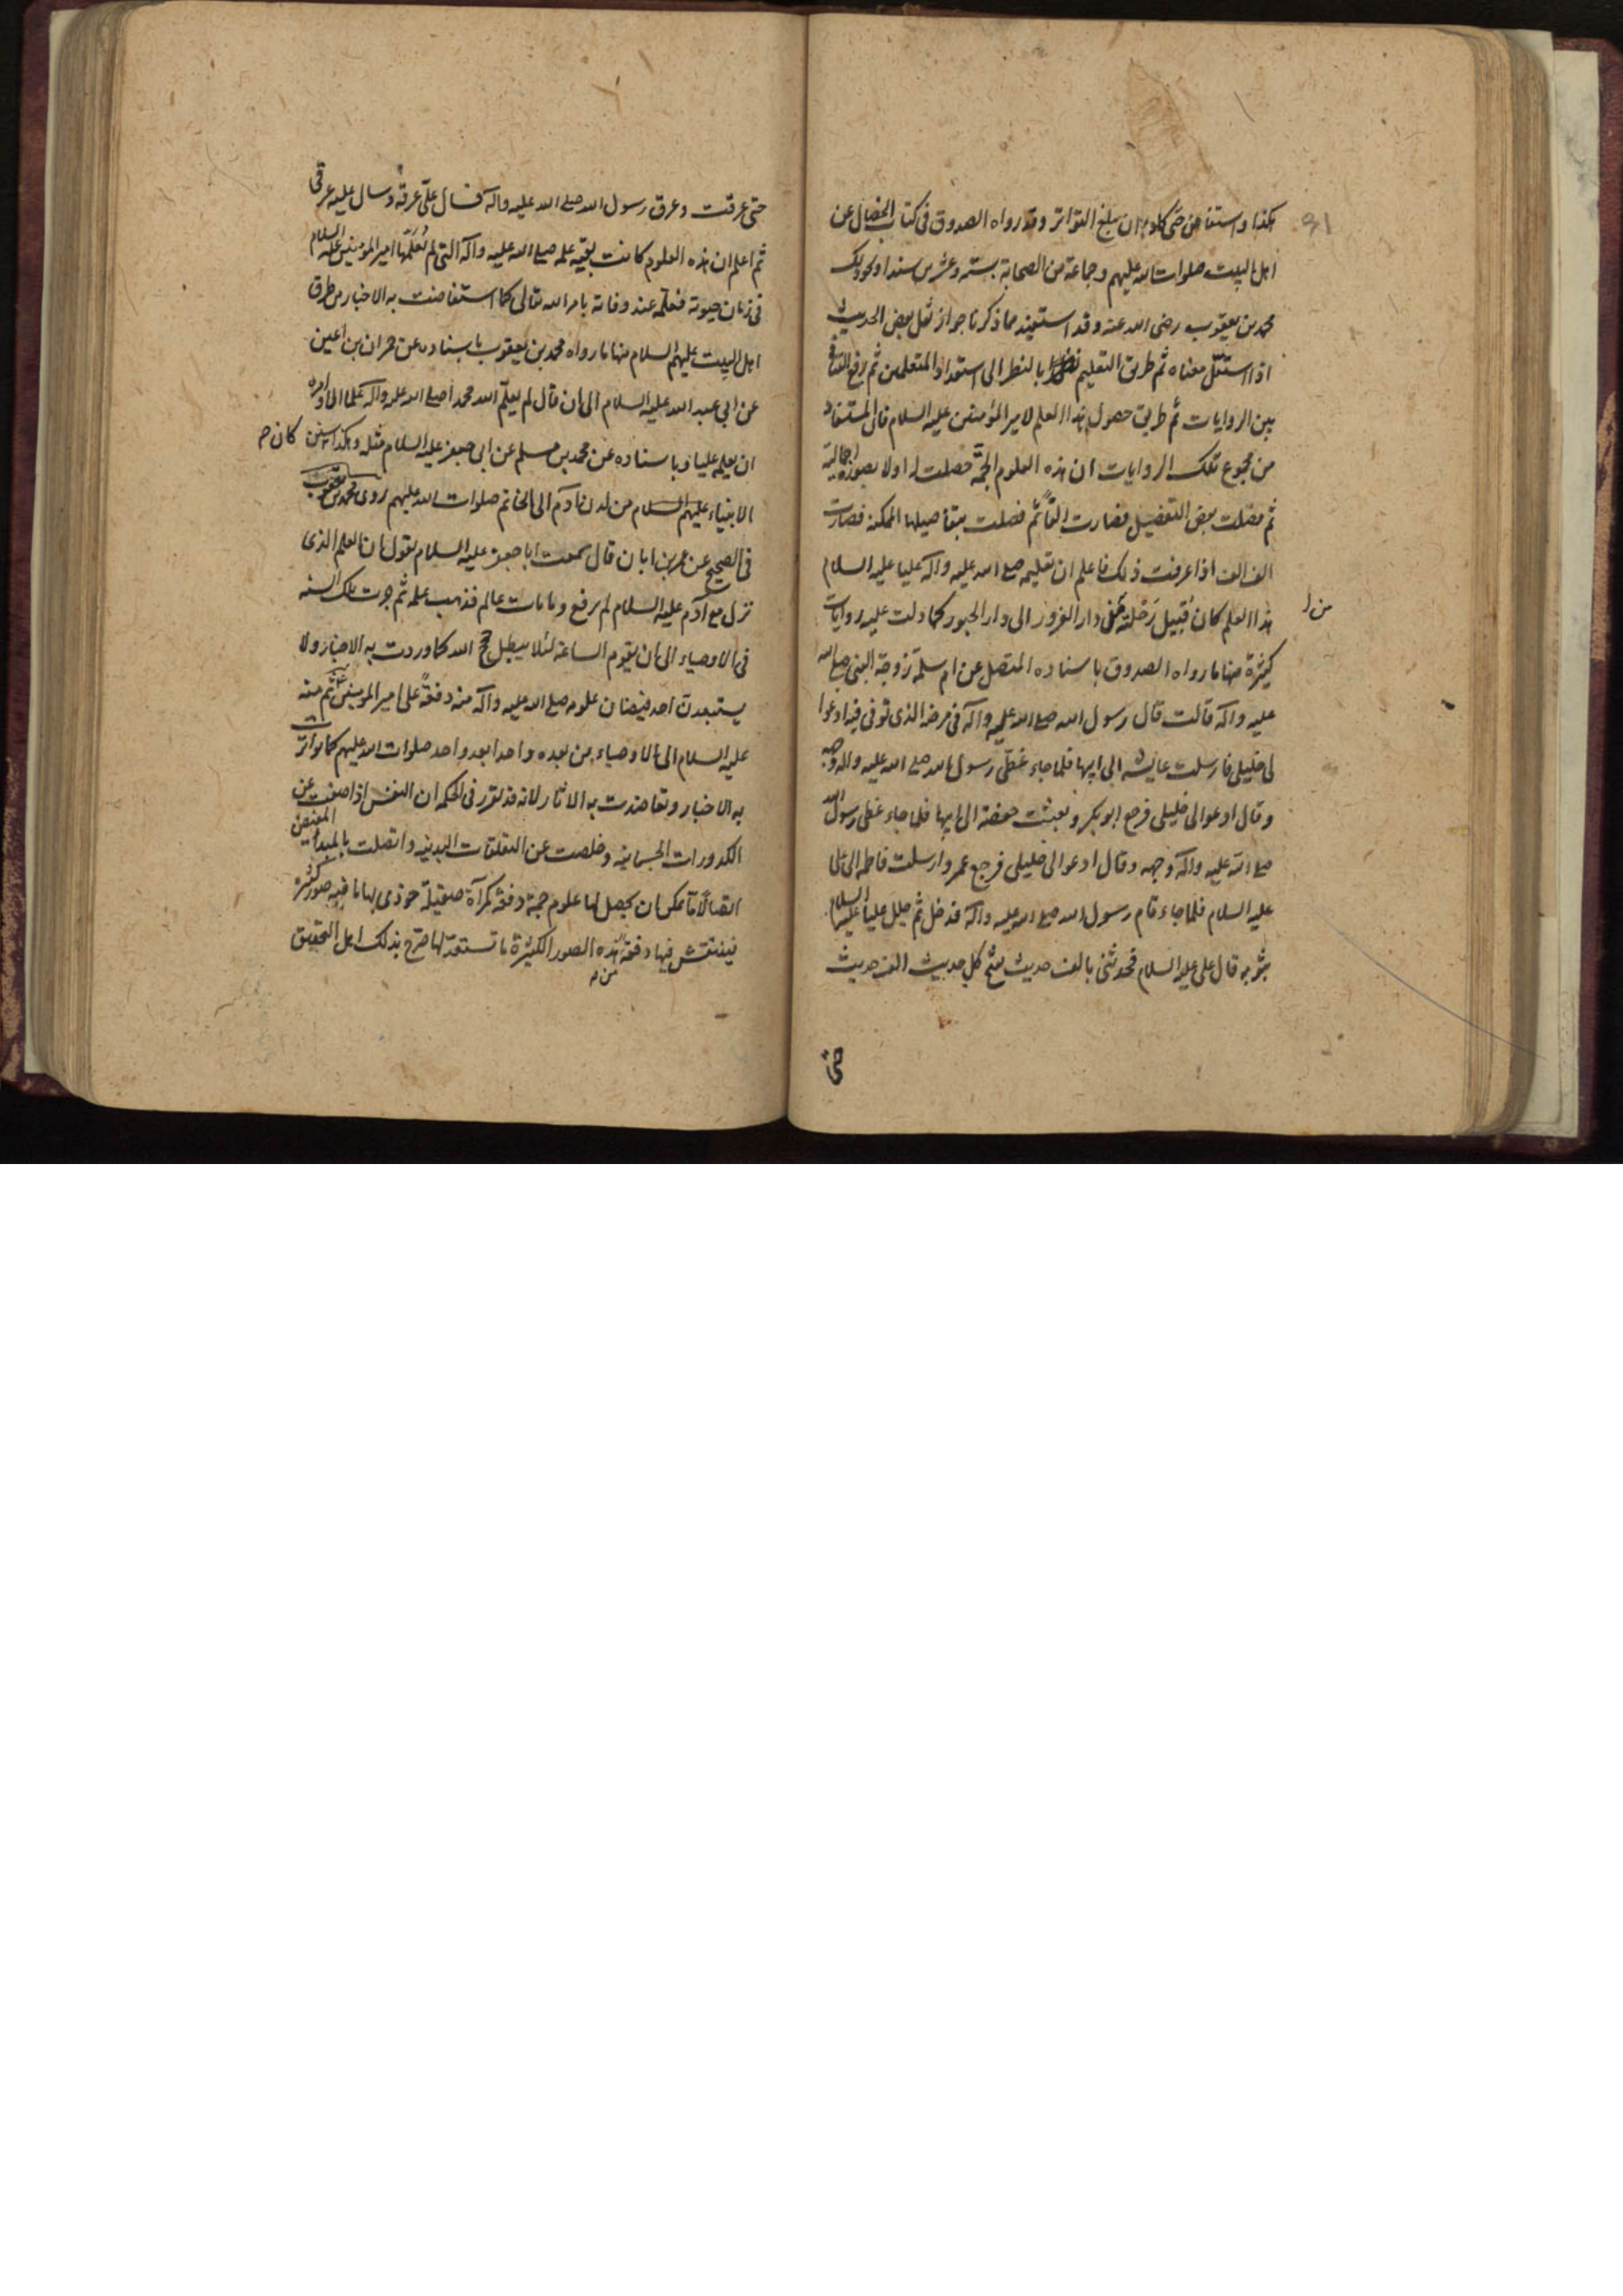 هكذا واستفاض حتى كاد ان يبلغ التواتر وقد رواه الصدوق فى كتاب الخصال عن
اهل البيت صلوات الله عليهم وجماعة من الصحابة بستة وعشرين سندا وكذلك
محمد بن يعقوب رضى الله عنه وقد استفيد مما ذكرنا جواز نقل بعض الحديث
اذا استقل معناه ثم طريق التعليم بالنظر الى استعداد المتعلمين ثم رفع التنافى
بين الروايات ثم طريق حصول هذا العلم لامير المؤمنين عليه السلام فالمستفاد
من مجموع تلك الروايات ان هذه العلوم الجمّة حصلت له اولا بصورة اجمالية
ثم فصلت بعض التفصيل فصارت الفاً ثم فصلت بتفاصيلها الممكنة فصارت
الف الف اذا عرفت ذلك فاعلم ان تعليمه صلى الله عليه وآله عليا عليه السلام
هذا العلم كان قبيل رحلته من دار الغرور الى دار الحبور كما دلت عليه روايات
كثيرة منها ما رواه الصدوق باسناده المتصل عن ام سلمة زوجة النبى صلى الله
عليه وآله قالت قال رسول الله صلى الله عليه وآله فى مرضه الذى توفى فيه ادعوا
لى خليلى فارسلت عايشه الى ابيها فلما جاء غطّى رسول الله صلى الله عليه وآله وجهه
وقال ادعوا لى خليلى فرجع ابو بكر وبعثت حفصة الى ابيها فلما جاء غطى رسول الله
صلى الله عليه وآله وجهه وقال ادعوا لى خليلى فرجع عمر وارسلت فاطمه الى على
عليه السلام فلما جاء قام رسول الله صلى الله عليه وآله فدخل ثم جلل عليا عليه السلام
بثوبه قال على عليه السلام فحدثنى بالف حديث يفتح كل حديث الف حديث
حتى
حتى عرقت وعرق رسول الله صلى الله عليه وآله فسال علىّ عرقه وسال عليه عرقى
ثم اعلم ان هذه العلوم كانت بقية علمه صلى الله عليه وآله التى لم تعلمها امير المؤمنين عليه السلام
فى زمان حيوته فعلمه عند وفاته بامر الله تعالى كما استفاضت به الاخبار من طرق
اهل البيت عليهم السلام منها ما رواه محمد بن يعقوب باسناده عن حمران بن اعين
عن ابى عبد الله عليه السلام الى ان قال لم يعلّم الله محمدا صلى الله عليه وآله علما الا وامره
ان يعلمه عليا وباسناده عن محمد بن مسلم عن ابى جعفر عليه السلام مثله وهكذا كان
الانبياء عليهم السلام من لدن آدم الى الخاتم صلوات الله عليهم روى محمد بن يعقوب
فى الصحيح عن عمر بن ابان قال سمعت ابا جعفر عليه السلام يقول ان العلم الذى
نزل مع آدم عليه السلام لم يرفع وما مات عالم فذهب علمه ثم جرت تلك السنه
فى الاوصياء الى ان يقوم الساعة لئلا يبطل حجج الله كما وردت به الاخبار ولا
يستبعدن احد فيضان علومه صلى الله عليه وآله منه دفعةً على امير المؤمنين ثم منه
عليه السلام الى الاوصياء من بعده واحدا بعد واحد صلوات الله عليهم كما تواترت
به الاخبار وتعاضدت به الاثار لانه قد تقرر فى الحكمه ان النفس اذا صفت عن
الكدورات الجسمانيه وخلصت عن التعلقات البدنيه واتصلت بالمبداء المفيض
اتصالاً ما يمكن ان يحصل لها علوم جمة دفعة كمرآة صقيلة حوذى بها ما فيه صور كثيرة
فينتقش فيها دفعة من هذه الصور الكثيرة ما تستعد لها صرح بذلك اهل التحقيق